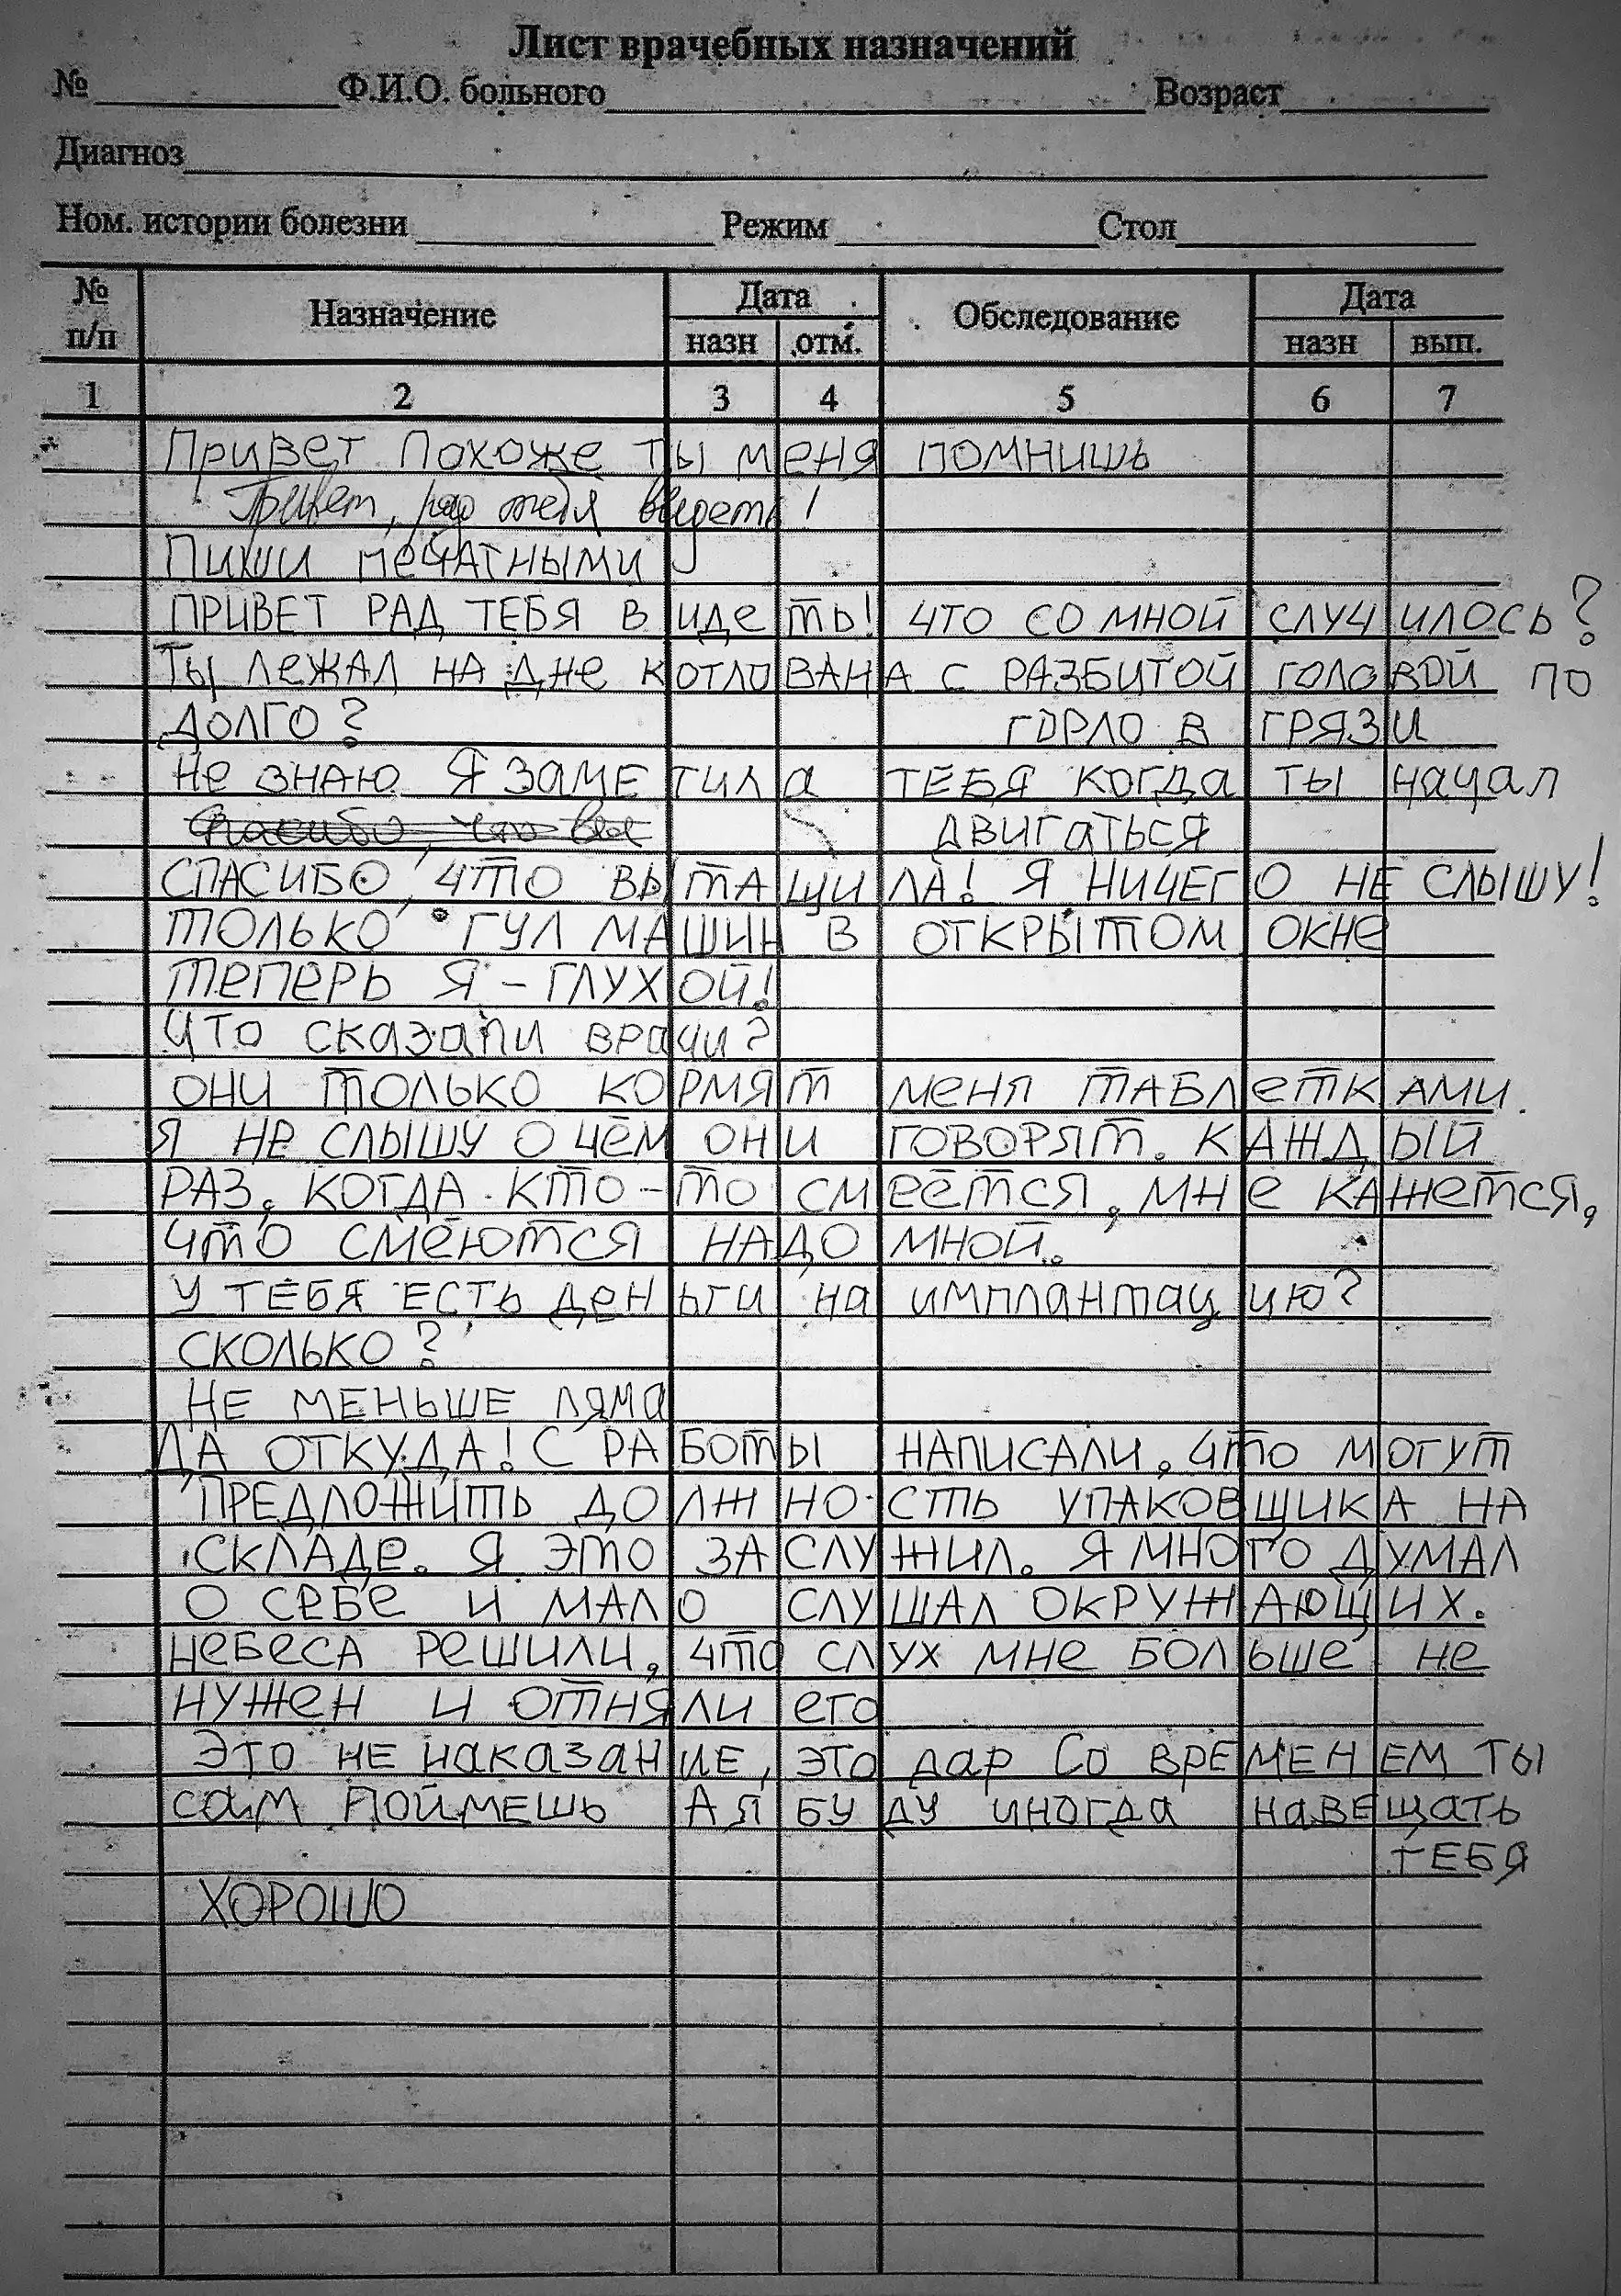 Лист врачебных назначений
№ Ф.И.О. больного Возраст
Диагноз
Ном. истории болезни Режим Стол
№ п/п Назначение Дата Обследование Дата
назн отм. назн вып.
1 2 3 4 5 6 7
Привет Похоже ты меня помнишь
Привет, рад тебя видеть!
Пиши печатными
ПРИВЕТ РАД ТЕБЯ ВИДеть! ЧТО СО МНОЙ СЛУЧИЛОСЬ?
Ты лежАЛ НА ДНе КОТЛОВАНА С РАЗБИТОЙ ГОЛОВОЙ ПО
ГОРЛО В ГРЯЗИ
ДОЛГО?
Не ЗНАЮ Я ЗаМЕТИЛа ТЕБЯ КОГДа ТЫ Начал
ДВИГаТЬСЯ
Спасибо, что вы
СПАСИБО, ЧТО ВЫТАЩИЛА! Я НИЧЕГО НЕ СЛЫШУ!
ТОЛЬКО ГУЛ МАШИН В ОТКРЫТОМ ОКНе
ТеПеРЬ Я - ГЛУХОЙ!
ЧТО СКаЗаЛИ ВРаЧИ?
ОНИ ТОЛЬКО КОРМЯТ МеНЯ ТАБЛеТКАМИ.
Я Не СЛЫШУ О ЧёМ ОНИ ГОВОРЯТ. КАЖДЫЙ
РАЗ, КОГДА КТО-ТО СМеёТСЯ, МНе КАЖеТСЯ,
ЧТО СМеЮТСЯ НАДО МНОЙ.
У ТЕБЯ ЕСТЬ ДеНЬГИ На ИМПЛаНТаЦИЮ?
СКОЛЬКО?
НЕ МЕНЬШЕ ЛЯМа
ДА ОТКУДА! С РАБОТЫ НАПИСАЛИ, ЧТО МОГУТ
ПРЕДЛОЖИТЬ ДОЛЖНОСТЬ УПАКОВЩИКА НА
СКЛАДе. Я ЭТО ЗАСЛУЖИЛ. Я МНОГО ДУМАЛ
О СеБе И МАЛО СЛУШАЛ ОКРУЖАЮЩИХ.
НеБеСА РеШИЛИ, ЧТО СЛУХ МНе БОЛЬШе Не
НУЖеН И ОТНЯЛИ еГО
ЭТО НЕ НаКаЗаНИЕ, ЭТО ДаР СО ВРЕМЕНЕМ ТЫ
СаМ ПОЙМЕШЬ А Я БУДУ ИНОГДа НаВЕЩаТЬ
ТЕБЯ
ХОРОШО